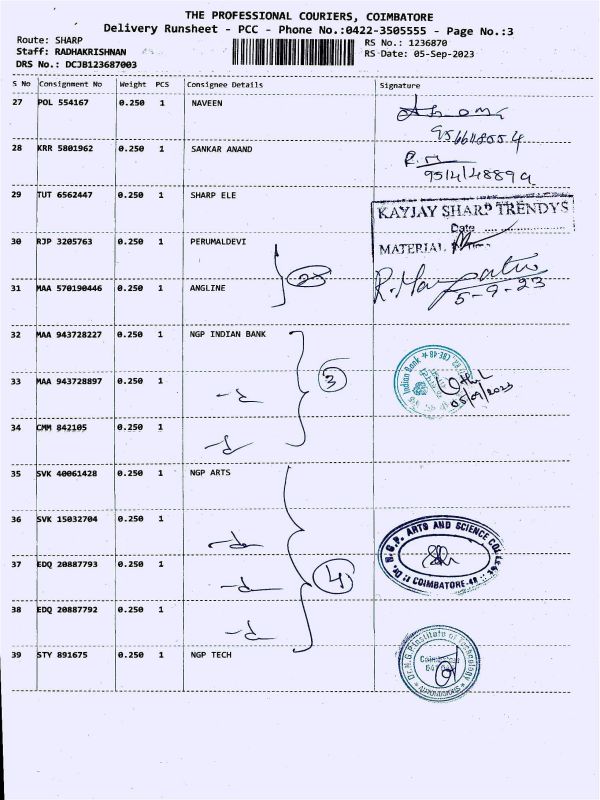 THE PROFESSIONAL COURIERS, COIMBATORE
Delivery Runsheet - PCC - Phone No.:0422-3505555 - Page No.:3
Route: SHARP
RS No.: 1236870
Staff: RADHAKRISHNAN
RS Date: 05-Sep-2023
DRS No.: DCJB123687003
S No Consignment No Weight PCS Consignee Details Signature
27 POL 554167 0.250 1 NAVEEN
28 KRR 5801962 0.250 1 SANKAR ANAND
29 TUT 6562447 0.250 1 SHARP ELE
KAYJAY SHARP TRENDYS
Date
MATERIAL
30 RJP 3205763 0.250 1 PERUMALDEVI
31 MAA 570190446 0.250 1 ANGLINE
5-9-23
32 MAA 943728227 0.250 1 NGP INDIAN BANK
Indian Bank
33 MAA 943728897 0.250 1
3
05/09/2023
34 CMM 842105 0.250 1
35 SVK 40061428 0.250 1 NGP ARTS
36 SVK 15032704 0.250 1
Dr. N.G.P. ARTS AND SCIENCE COLLEGE
COIMBATORE-48
37 EDQ 20887793 0.250 1
4
38 EDQ 20887792 0.250 1
39 STY 891675 0.250 1 NGP TECH
Dr.N.G.P.Institute of Technology
Coimbatore